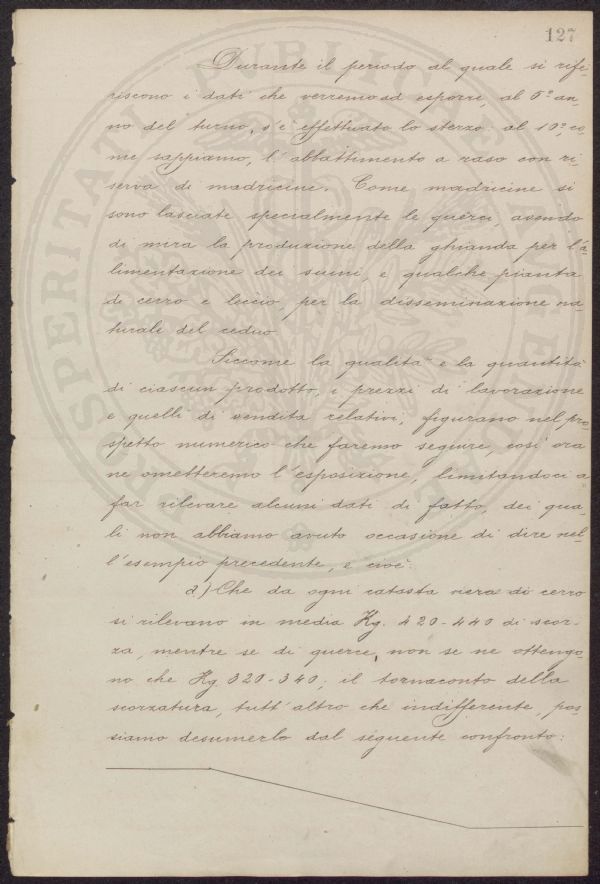 127
Durante il periodo al quale si rife-
riscono i dati che verremo ad esporre, al 5º an-
no del turno, s'è effettuato lo sterzo: al 10º, co-
me sappiamo, l'abbattimento a raso con ri-
serva di madricine. Come madricine si
sono lasciate specialmente le querci, avendo
di mira la produzione della ghianda per l'a-
limentazione dei suini, e qualche pianta
di cerro e leccio per la disseminazione na-
turale del ceduo.
Siccome la qualità e la quantità
di ciascun prodotto, i prezzi di lavorazione
e quelli di vendita relativi, figurano nel pro-
spetto numerico che faremo seguire, così ora
ne ometteremo l'esposizione, limitandoci a
far rilevare alcuni dati di fatto, dei qua-
li non abbiamo avuto occasione di dire nel-
l'esempio precedente, e cioè:
a) Che da ogni catasta vera di cerro
si rilevano in media Kg. 420-440 di scor-
za, mentre se di querce, non se ne ottengo-
no che Kg 320-340; il tornaconto della
scorzatura, tutt'altro che indifferente, pos-
siamo desumerlo dal seguente confronto: